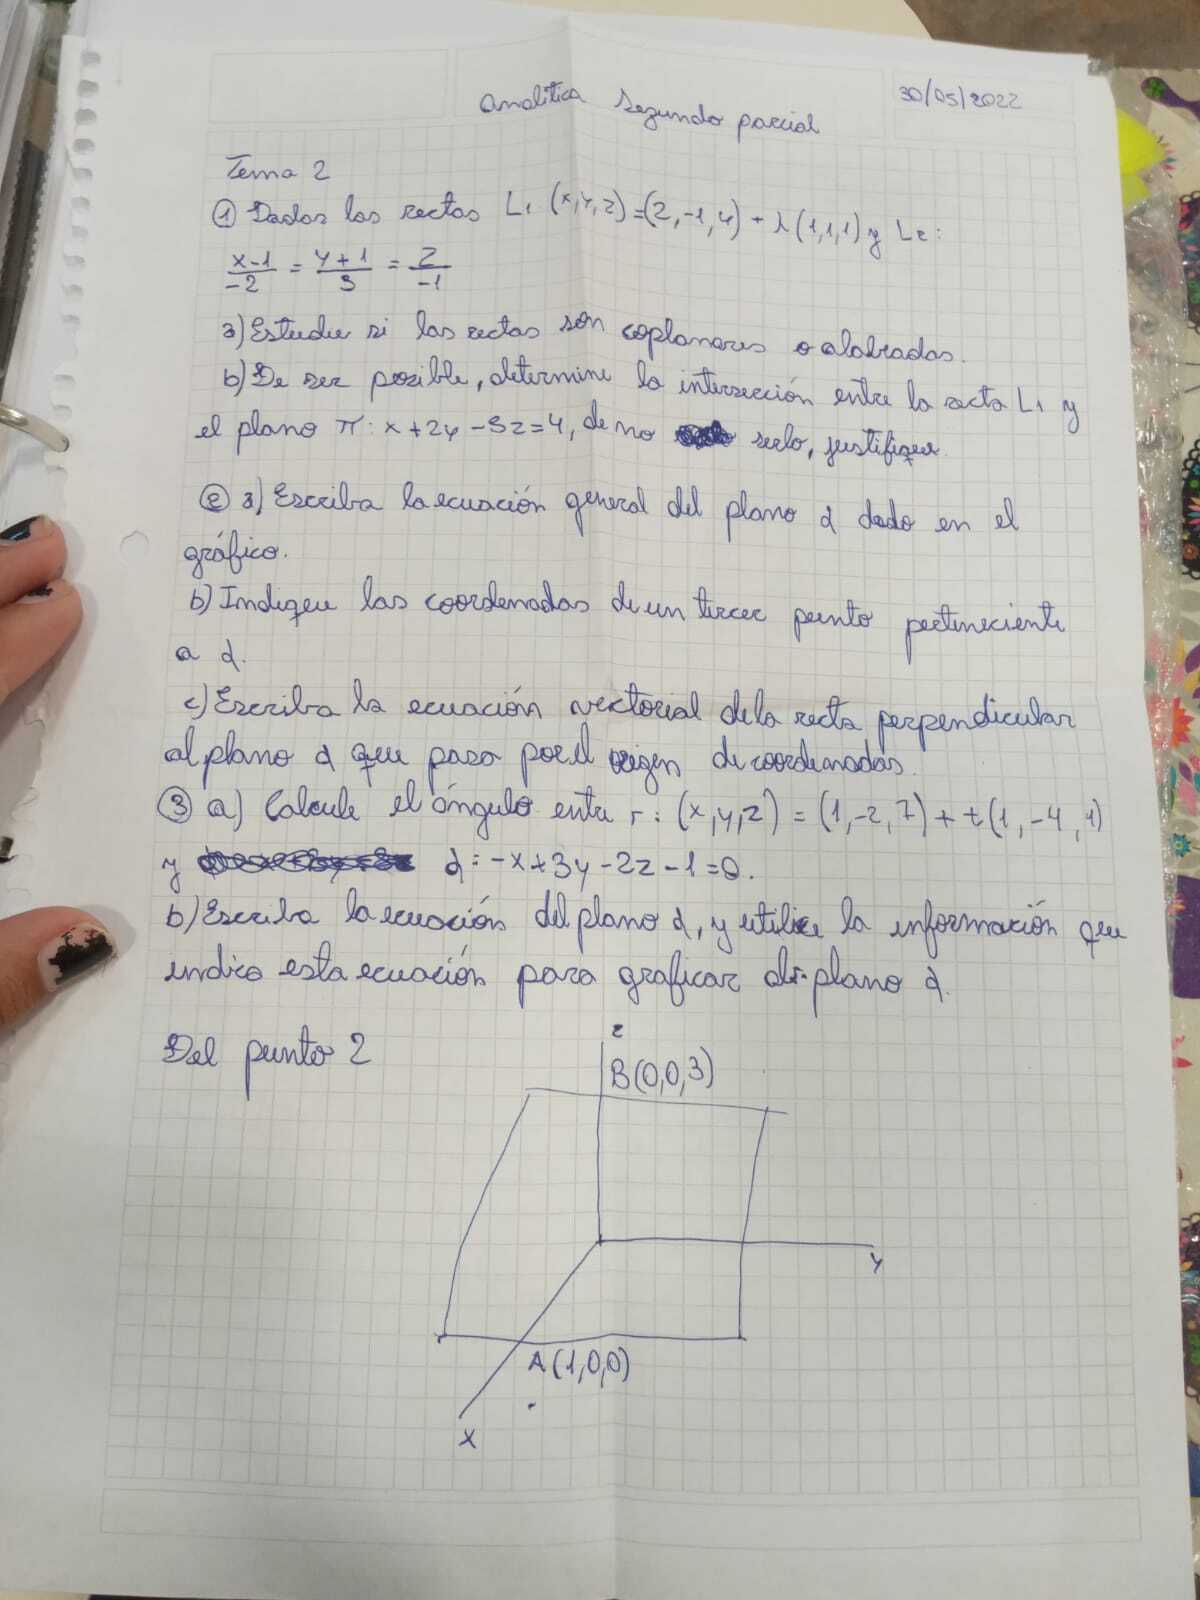 Analítica Segundo parcial
30/05/2022
Tema 2
① Dadas las rectas L₁ (x,y,z)=(2,-1,4)+λ(1,1,1) y L₂:
x-1/-2 = y+1/3 = z/-1
a) Estudie si las rectas son coplanares o alabeadas.
b) De ser posible, determine la intersección entre la recta L₁ y
el plano π: x+2y-3z=4, de no serlo, justifique.
② a) Escriba la ecuación general del plano α dado en el
gráfico.
b) Indique las coordenadas de un tercer punto perteneciente
a α.
c) Escriba la ecuación vectorial de la recta perpendicular
al plano α que pasa por el origen de coordenadas.
③ a) Calcule el ángulo entre r: (x,y,z) = (1,-2,7) + t(1,-4,1)
y α: -x+3y-2z-1=0.
b) Escriba la ecuación del plano α, y utilice la información que
indica esta ecuación para graficar plano α.
Del punto 2
z
B(0,0,3)
y
A(1,0,0)
x